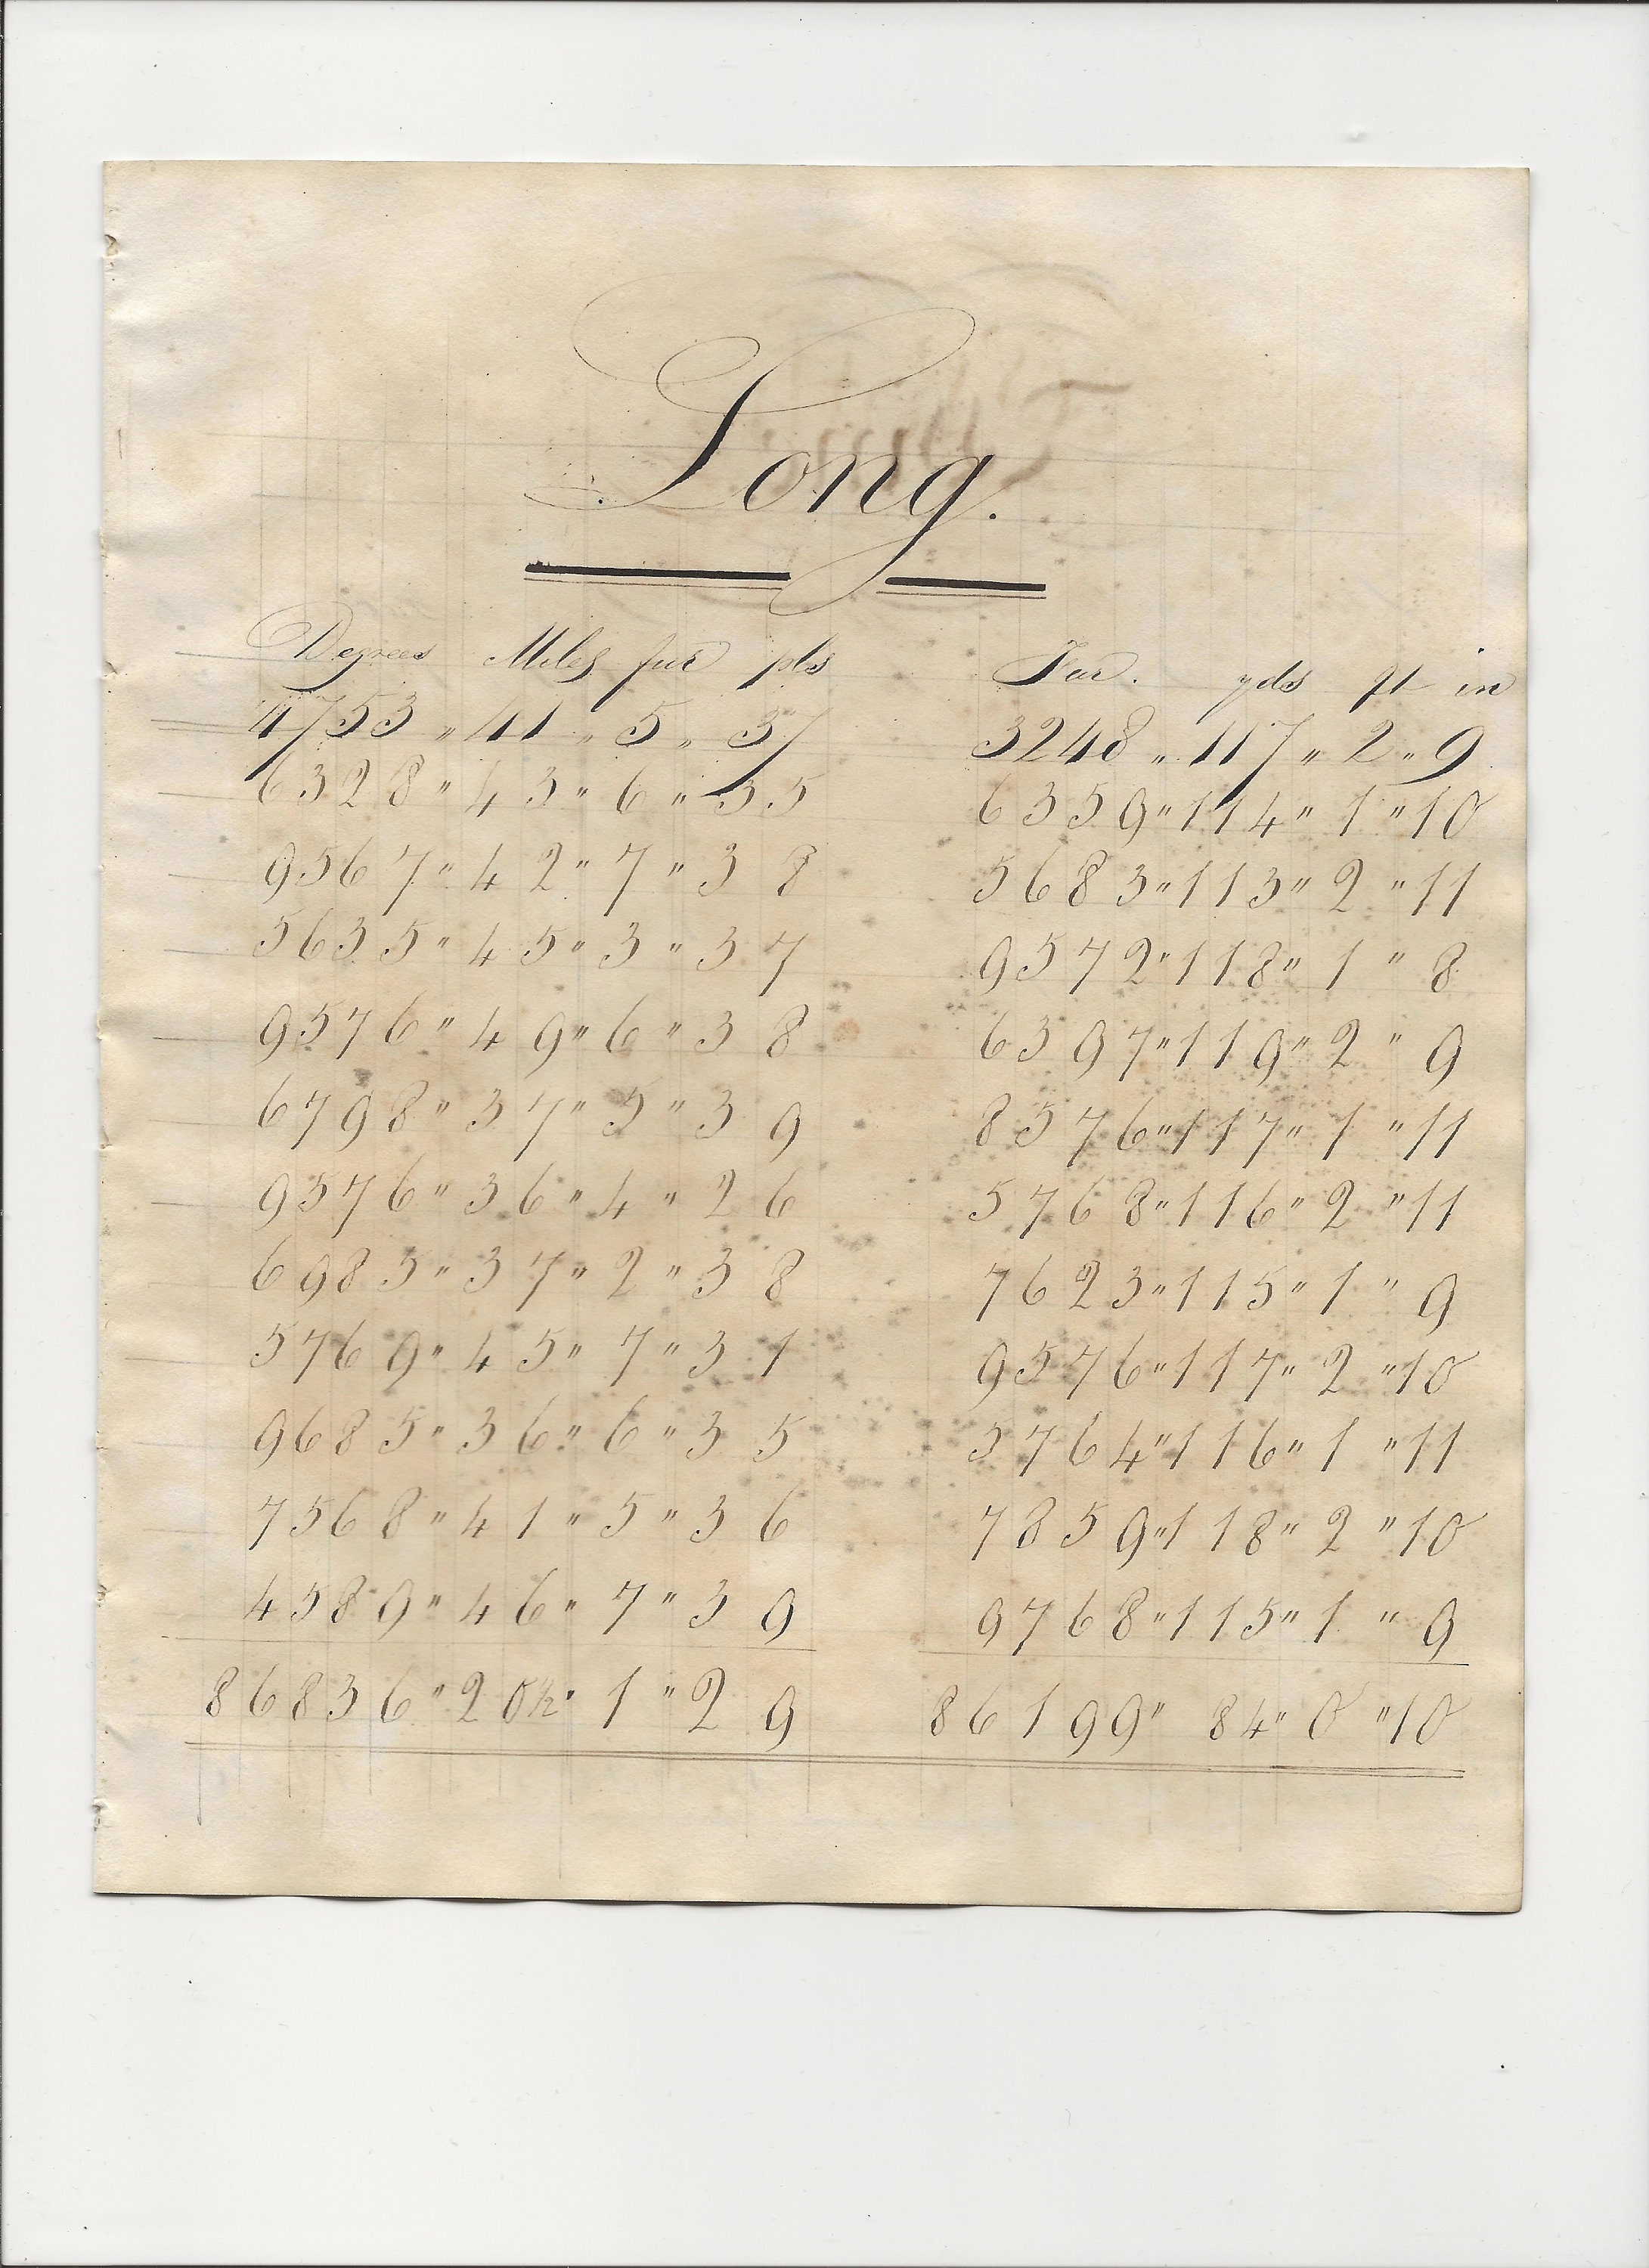 Long.
Degrees Miles fur pls
4753 " 41 " 5 " 37
6328 " 43 " 6 " 35
9567 " 42 " 7 " 38
5635 " 45 " 3 " 37
9576 " 49 " 6 " 38
6798 " 37 " 5 " 39
9576 " 36 " 4 " 26
6985 " 37 " 2 " 38
5769 " 45 " 7 " 31
9685 " 36 " 6 " 35
7568 " 41 " 5 " 36
4589 " 46 " 7 " 39
86836 " 20½ " 1 " 29
Fur. yds ft in
3248 " 117 " 2 " 9
6359 " 114 " 1 " 10
5683 " 113 " 2 " 11
9572 " 118 " 1 " 8
6397 " 119 " 2 " 9
8576 " 117 " 1 " 11
5768 " 116 " 2 " 11
7623 " 115 " 1 " 9
9576 " 117 " 2 " 10
5764 " 116 " 1 " 11
7859 " 118 " 2 " 10
9768 " 115 " 1 " 9
86199 " 84 " 0 " 10